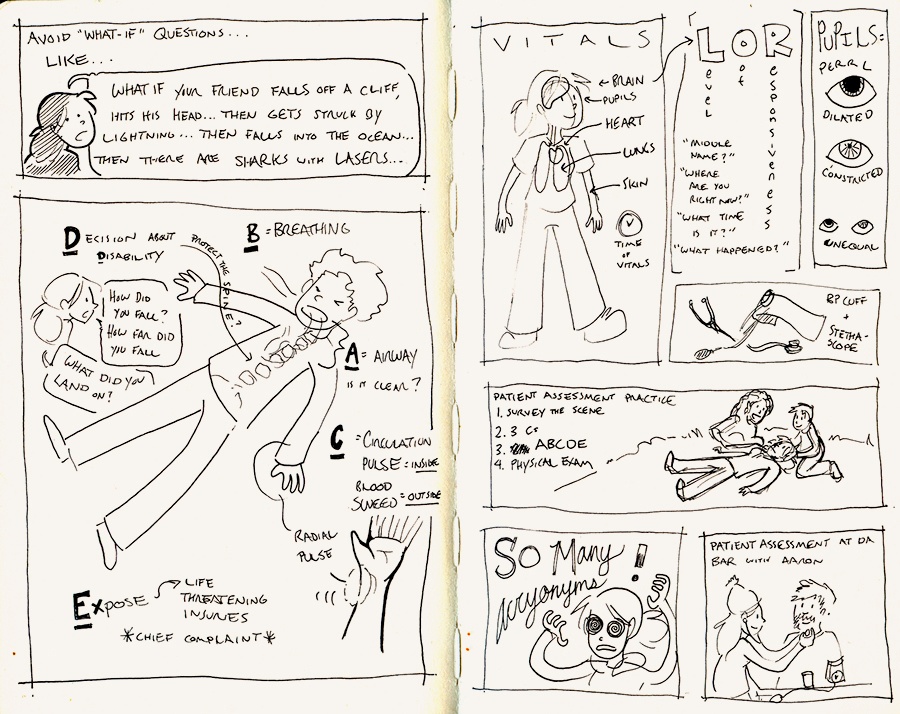 AVOID "WHAT-IF" QUESTIONS...
LIKE...
WHAT IF YOUR FRIEND FALLS OFF A CLIFF,
HITS HIS HEAD... THEN GETS STRUCK BY
LIGHTNING... THEN FALLS INTO THE OCEAN...
THEN THERE ARE SHARKS WITH LASERS...
DECISION ABOUT
DISABILITY
PROTECT THE SPINE?
B = BREATHING
HOW DID
YOU FALL?
HOW FAR DID
YOU FALL
WHAT DID YOU
LAND ON?
A = AIRWAY
IS IT CLEAR?
C = CIRCULATION
PULSE = INSIDE
BLOOD
SWEED = OUTSIDE
RADIAL
PULSE
EXPOSE
LIFE
THREATENING
INJURIES
*CHIEF COMPLAINT*
VITALS
BRAIN
PUPILS
HEART
LUNGS
SKIN
TIME
OF
VITALS
LOR
Level
of
Responsiveness
"MIDDLE
NAME?"
"WHERE
ARE YOU
RIGHT NOW?"
"WHAT TIME
IS IT?"
"WHAT HAPPENED?"
PUPILS:
PERRL
DILATED
CONSTRICTED
UNEQUAL
BP CUFF
+
STETHA-
SCOPE
PATIENT ASSESSMENT PRACTICE
1. SURVEY THE SCENE
2. 3 Cs
3. ABCDE
4. PHYSICAL EXAM
SO MANY
acryonyms!
PATIENT ASSESSMENT AT DA
BAR WITH AARON